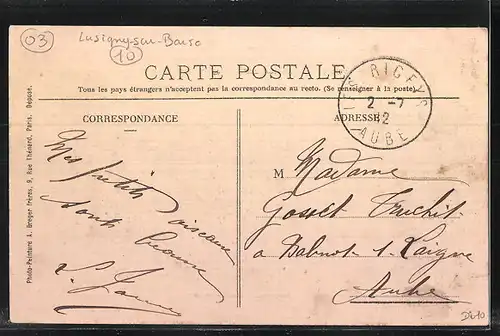 03
Lusigny-sur-Barse
10
CARTE POSTALE
Tous les pays étrangers n'acceptent pas la correspondance au recto. (Se renseigner à la poste).
LES RICEYS
2 - 7
12
AUBE
CORRESPONDANCE
ADRESSE
Mes petits oiseaux
sont
L.
M Madame
Gosset Truchit
a Balnot-s-Laigne
Aube
Photo-Peinture A. Breger Frères, 9, Rue Thénard, Paris. Déposé.